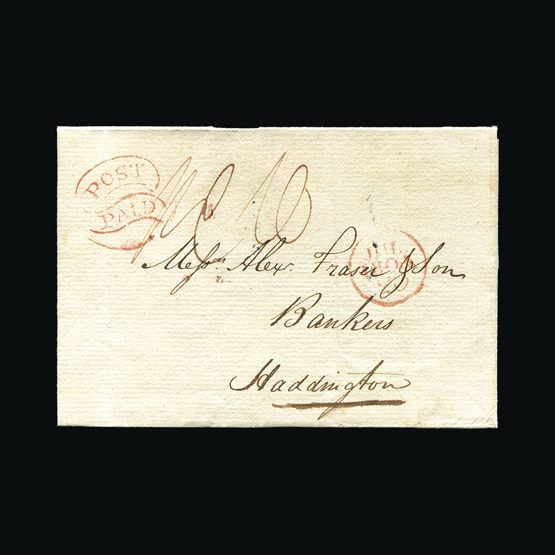 POST
PAID
Messrs. Alexr. Fraser & Son
Bankers
Haddington
JUL